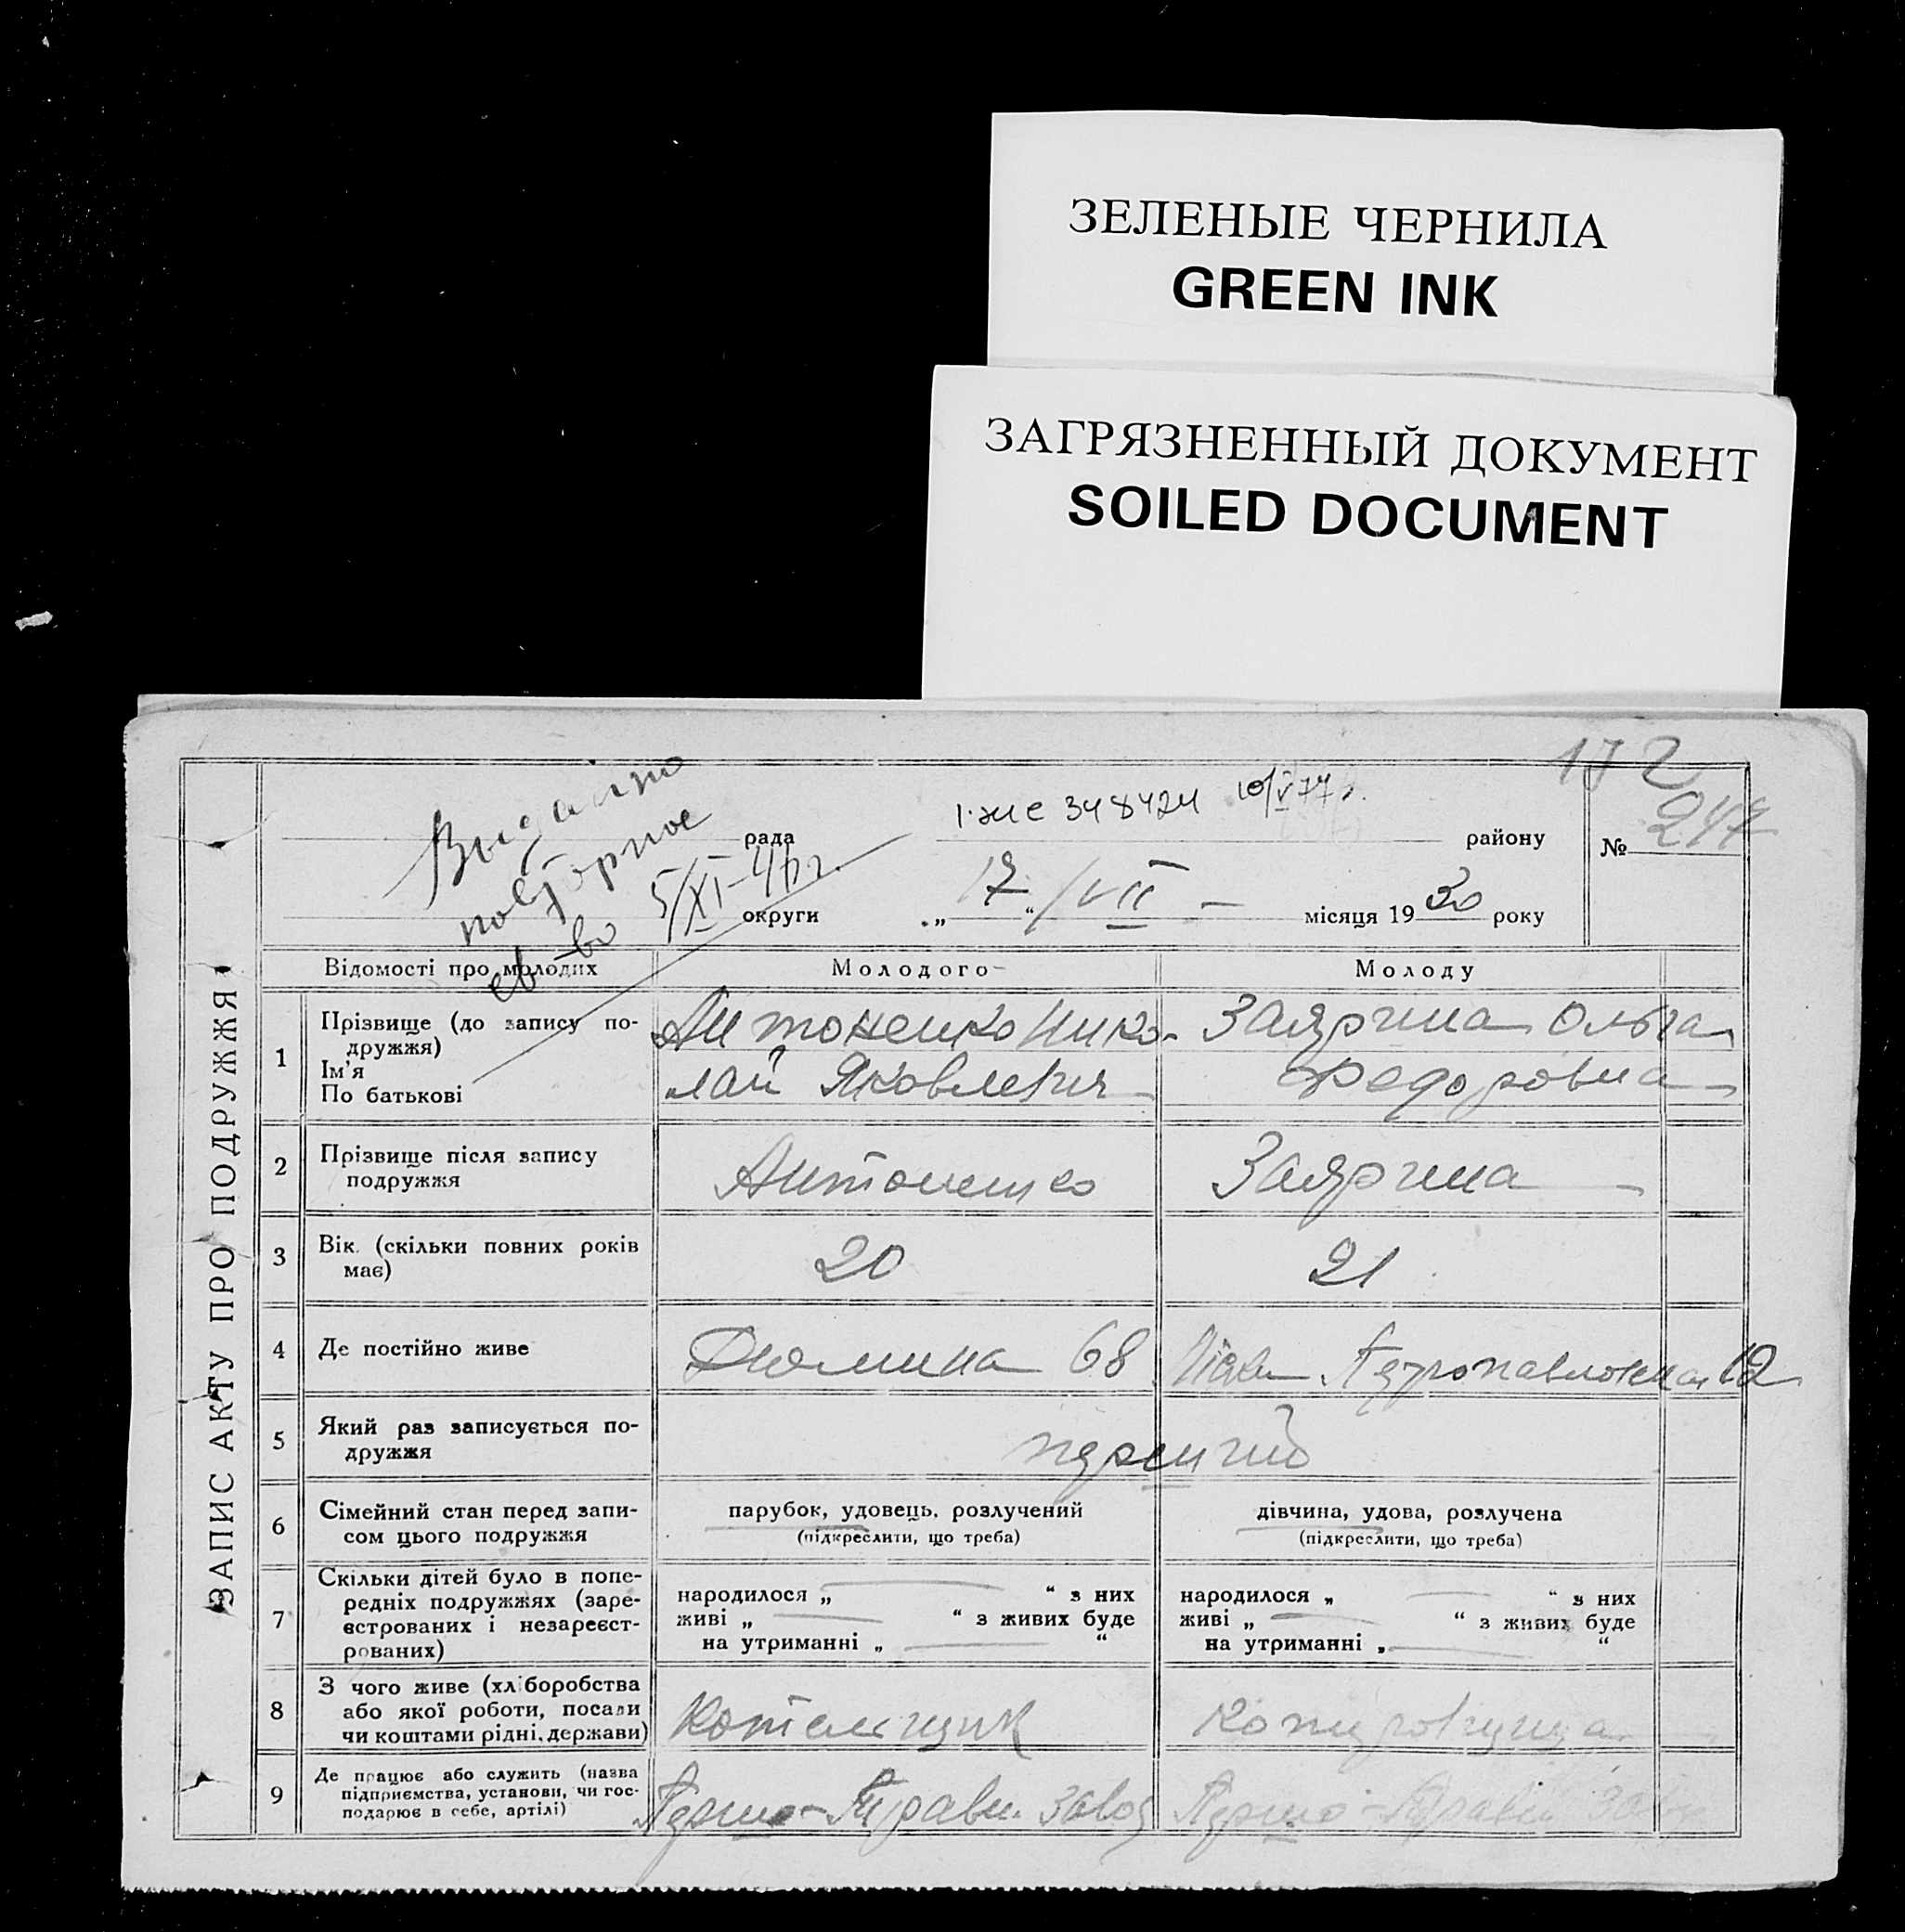 ЗЕЛЕНЫЕ ЧЕРНИЛА
GREEN INK
ЗАГРЯЗНЕННЫЙ ДОКУМЕНТ
SOILED DOCUMENT
172
ЗАПИС АКТУ ПРО ПОДРУЖЖЯ
повторное
св-во 5/XI-46г.
348424 10/V 77г.
рада району № 247
округи „17“ /VII – місяця 1930 року
Відомості про молодих Молодого Молоду
1 Прізвище (до запису по-
дружжя)
Ім'я
По батькові
Антоненко Нико-
лай Яковлевич
Заярина Ольга
Федоровна
2 Прізвище після запису
подружжя
Антоненко Заярина
3 Вік (скільки повних років
має)
20 21
4 Де постійно живе
68 12
5 Який раз записується по-
дружжя
перший
6 Сімейний стан перед запи-
сом цього подружжя
парубок, удовець, розлучений
(підкреслити, що треба)
дівчина, удова, розлучена
(підкреслити, що треба)
7 Скільки дітей було в попе-
редніх подружжях (заре-
єстрованих і незареєст-
рованих)
народилося „ “ з них
живі „ “ з живих буде
на утриманні „ “
народилося „ “ з них
живі „ “ з живих буде
на утриманні „ “
8 З чого живе (хліборобства
або якої роботи, посади
чи коштами рідні, держави)
Котельщик
9 Де працює або служить (назва
підприємства, установи, чи гос-
подарює в себе, артілі)
завод